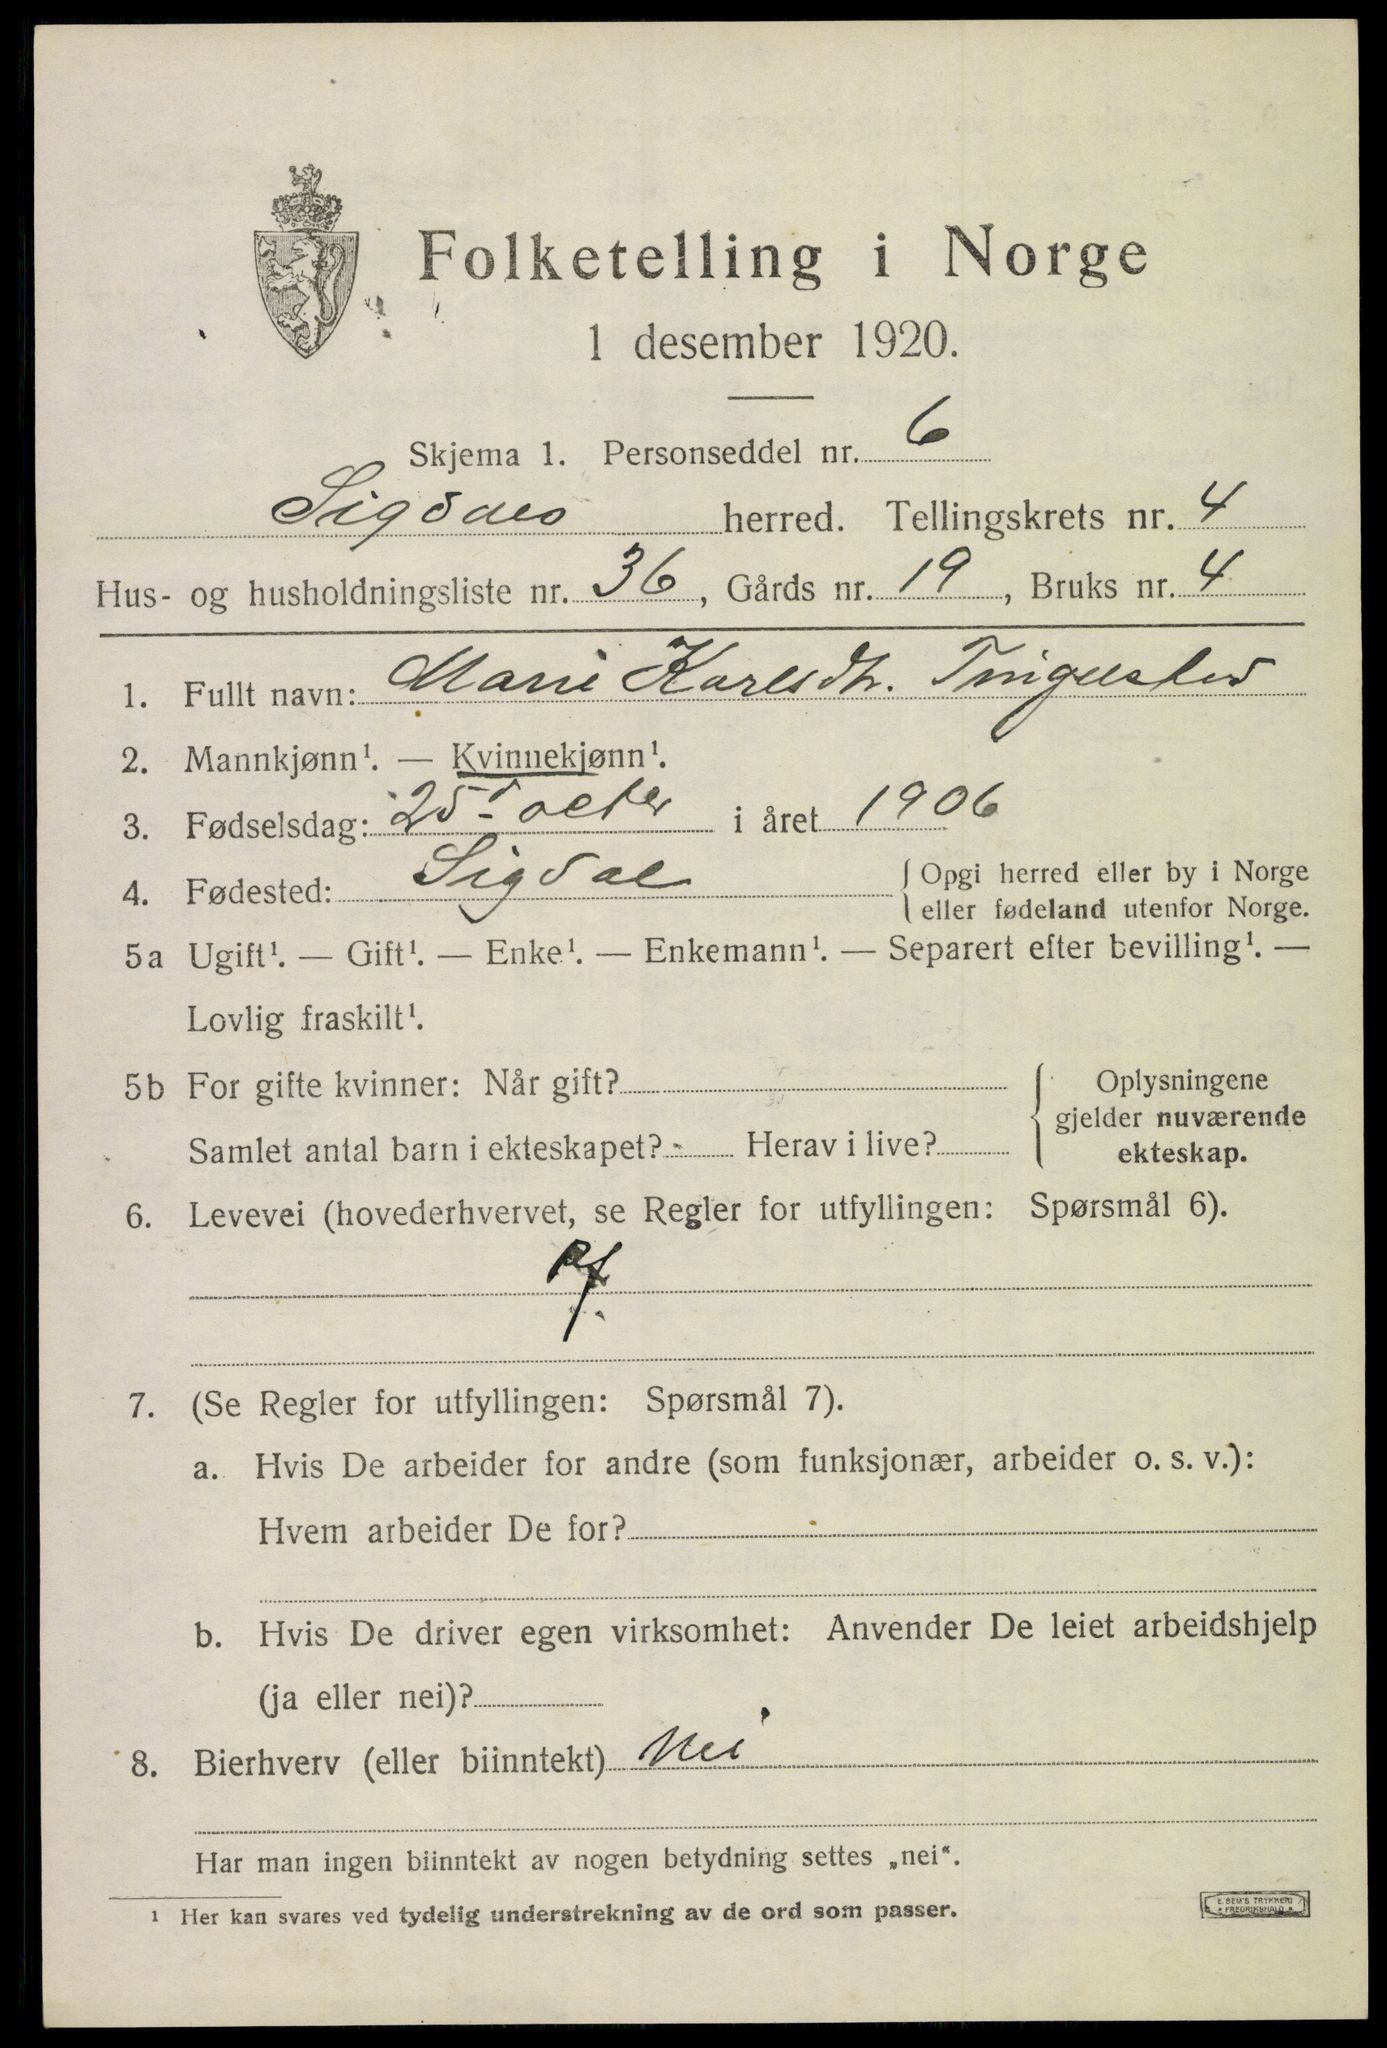 Folketelling i Norge
1 desember 1920.
Skjema 1. Personseddel nr. 6
Sigdals herred. Tellingskrets nr. 4
Hus- og husholdningsliste nr. 36, Gårds nr. 19, Bruks nr. 4
1. Fullt navn: Marie Karlsdtr.
2. Mannkjønn¹. — Kvinnekjønn¹.
3. Fødselsdag: 25d octbr i året 1906
4. Fødested: Sigdal { Opgi herred eller by i Norge
eller fødeland utenfor Norge.
5a Ugift¹. — Gift¹. — Enke¹. — Enkemann¹. — Separert efter bevilling¹. —
Lovlig fraskilt¹.
5b For gifte kvinner: Når gift? { Oplysningene
gjelder nuværende
Samlet antal barn i ekteskapet? Herav i live? ekteskap.
6. Levevei (hovederhvervet, se Regler for utfyllingen: Spørsmål 6).
7. (Se Regler for utfyllingen: Spørsmål 7).
a. Hvis De arbeider for andre (som funksjonær, arbeider o. s. v.):
Hvem arbeider De for?
b. Hvis De driver egen virksomhet: Anvender De leiet arbeidshjelp
(ja eller nei)?
8. Bierhverv (eller biinntekt) Nei
Har man ingen biinntekt av nogen betydning settes „nei“.
¹ Her kan svares ved tydelig understrekning av de ord som passer.
E. SEM'S TRYKKERI
FREDRIKSHALD